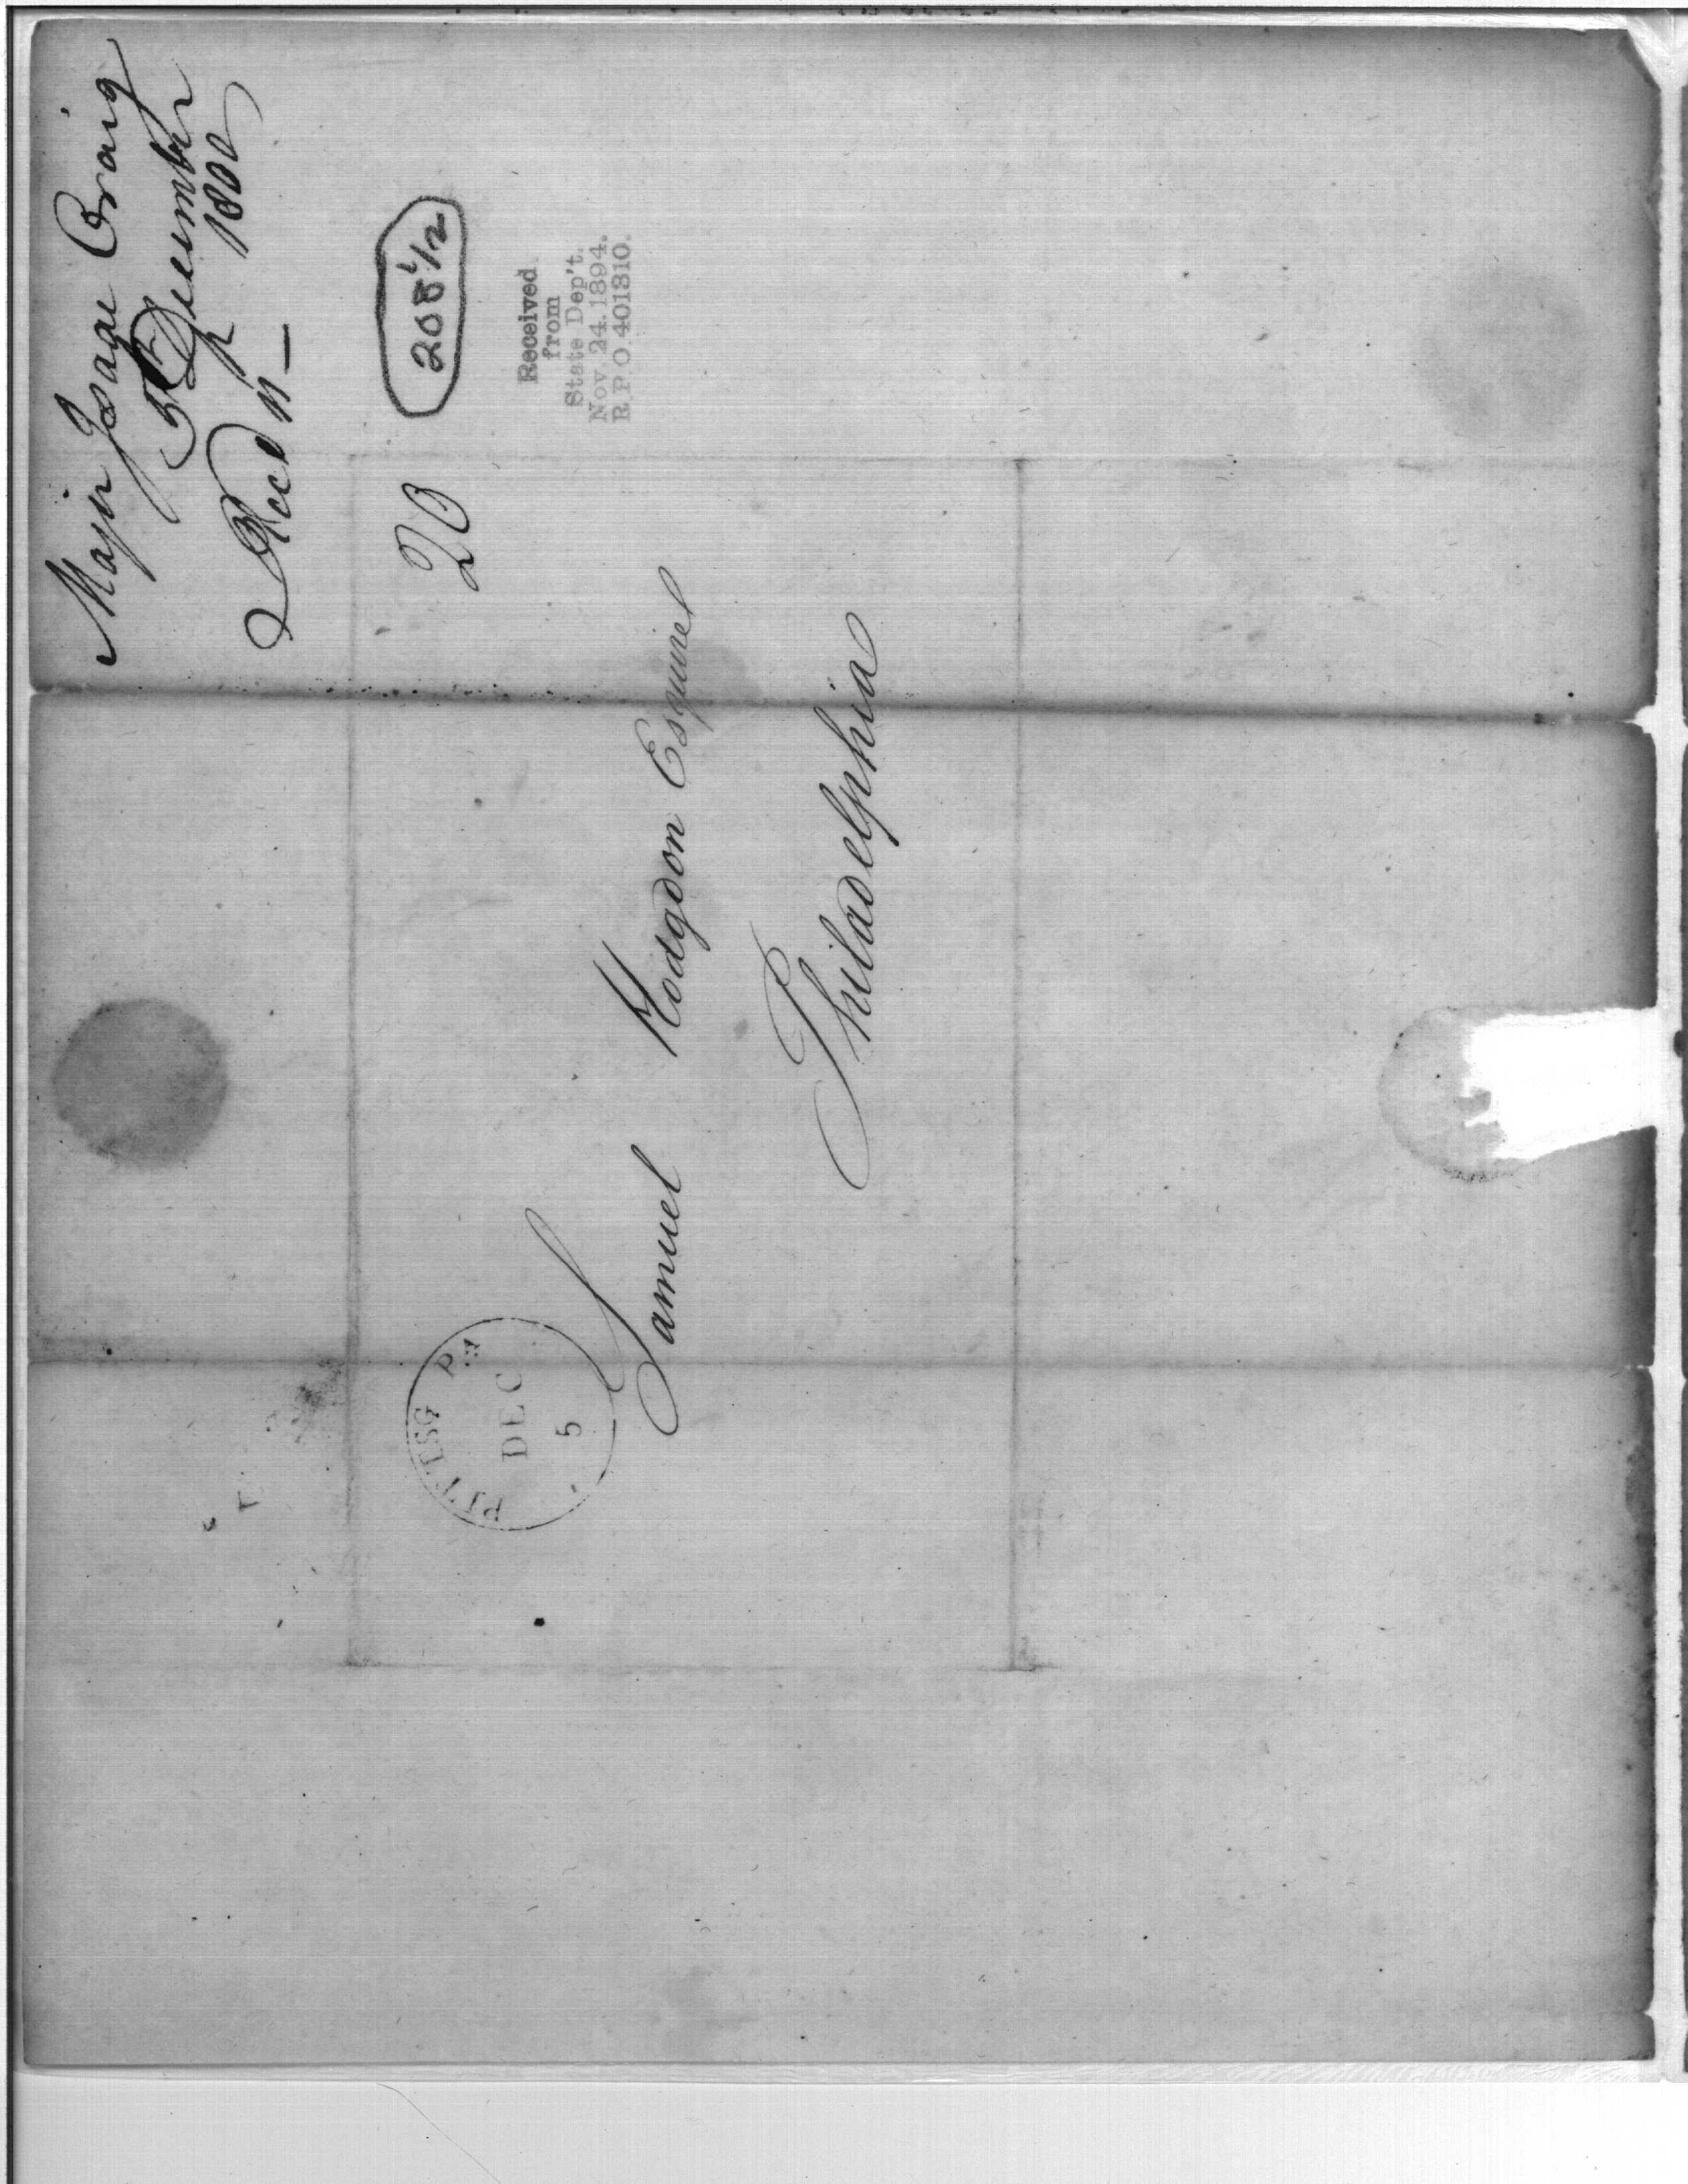 Major Isaac Craig
5th December
1800
Recd 11
20
208 1/2
Received
from
State Dep't.
Nov. 24. 1894.
R. P. O. 401310.
PITTSG PA
DEC
5
Samuel Hodgdon Esquire
Philadelphia